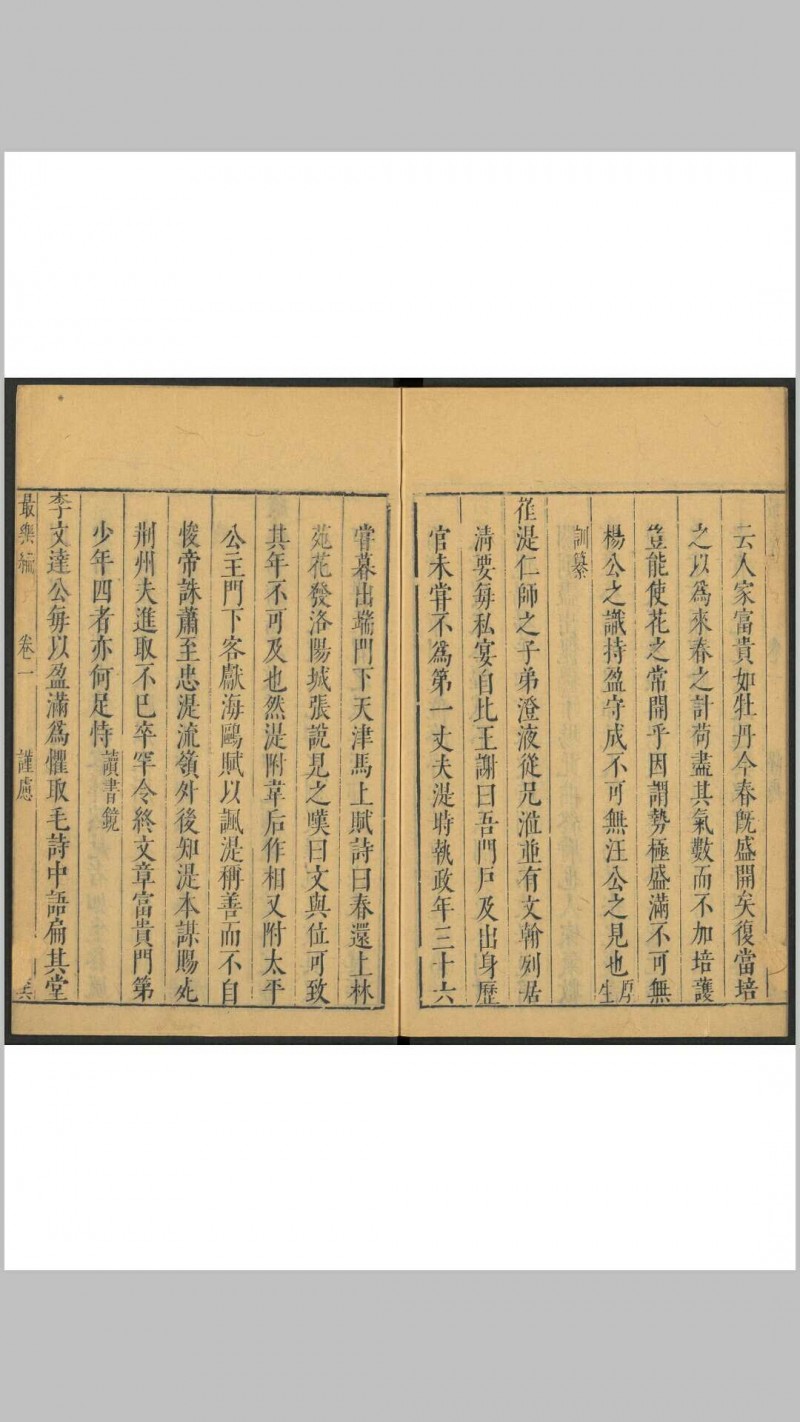 云人家富貴如牡丹今春旣盛開矣復當培
之以爲來春之計苟盡其氣數而不加培護
豈能使花之常開乎因謂勢極盛滿不可無
楊公之識持盈守成不可無汪公之見也厚生
訓纂
崔湜仁師之子弟澄液從兄涖並有文翰列居
淸要每私宴自比王謝曰吾門戶及出身歷
官未甞不爲第一丈夫湜時執政年三十六
甞暮出端門下天津馬上賦詩曰春還上林
苑花發洛陽城張說見之嘆曰文與位可致
其年不可及也然湜附韋后作相又附太平
公主門下客獻海鷗賦以諷湜稱善而不自
悛帝誅蕭至忠湜流嶺外後知湜本謀賜死
荆州夫進取不已卒罕令終文章富貴門第
少年四者亦何足恃讀書鏡
李文達公每以盈滿爲懼取毛詩中語扁其堂
最樂編 卷一 謹慮